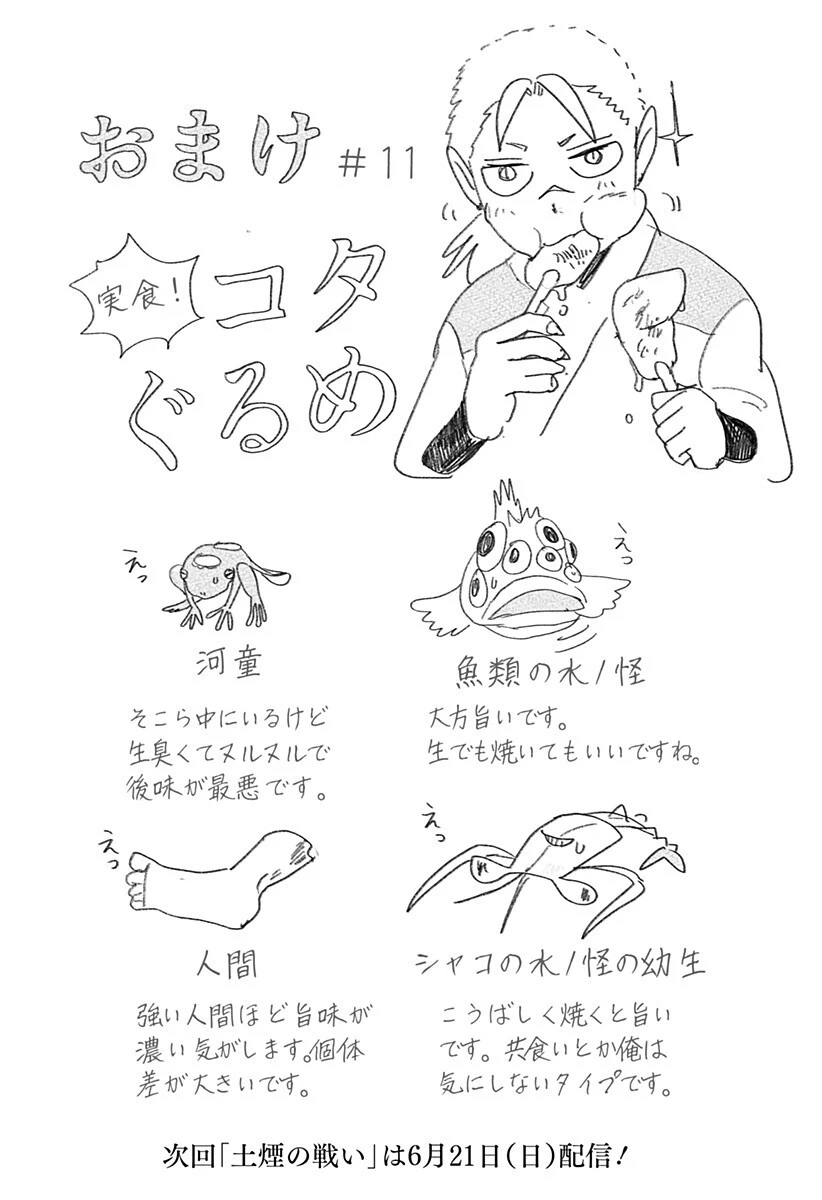 おまけ #11
実食!
コタ
ぐるめ
えっ
河童
そこら中にいるけど
生臭くてヌルヌルで
後味が最悪です。
えっ
魚類の水ノ怪
大方旨いです。
生でも焼いてもいいですね。
えっ
人間
強い人間ほど旨味が
濃い気がします。個体
差が大きいです。
えっ
シャコの水ノ怪の幼生
こうばしく焼くと旨い
です。共食いとか俺は
気にしないタイプです。
次回「土煙の戦い」は6月21日(日)配信!